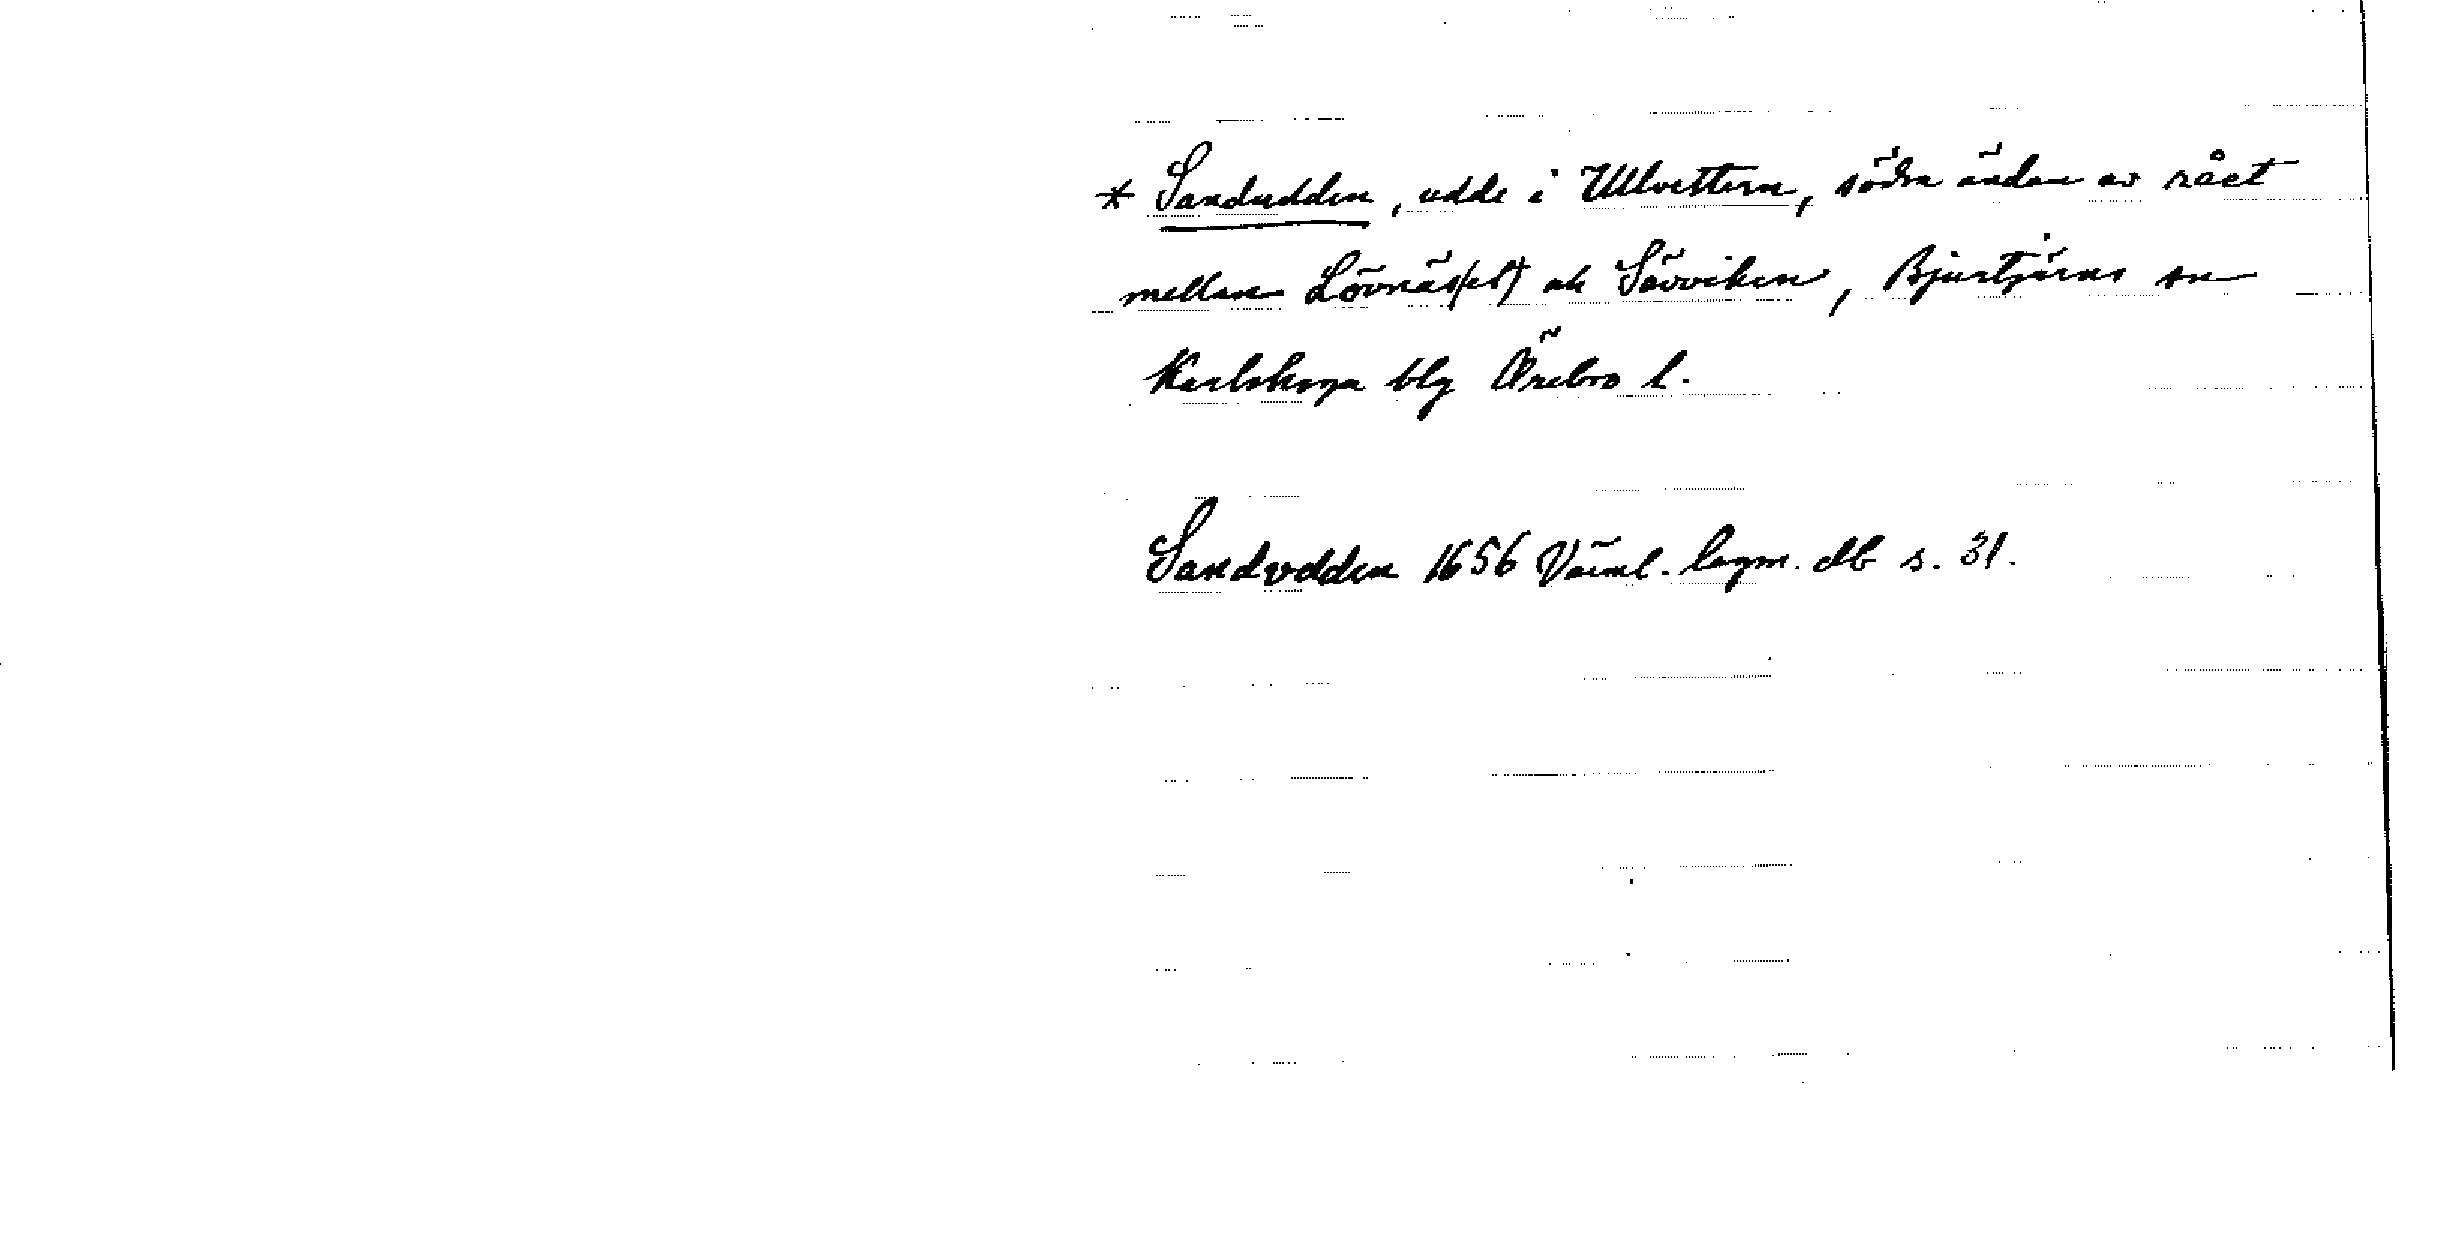 * Sandudden, udde i Ullvettern, södra ändan av rået
mellan Lövnäs(et) och Sävviken, Bjurtjärns sn
Karlskoga blg Örebro l.
Sandvdden 1656 Värml. lagm. db s. 31.